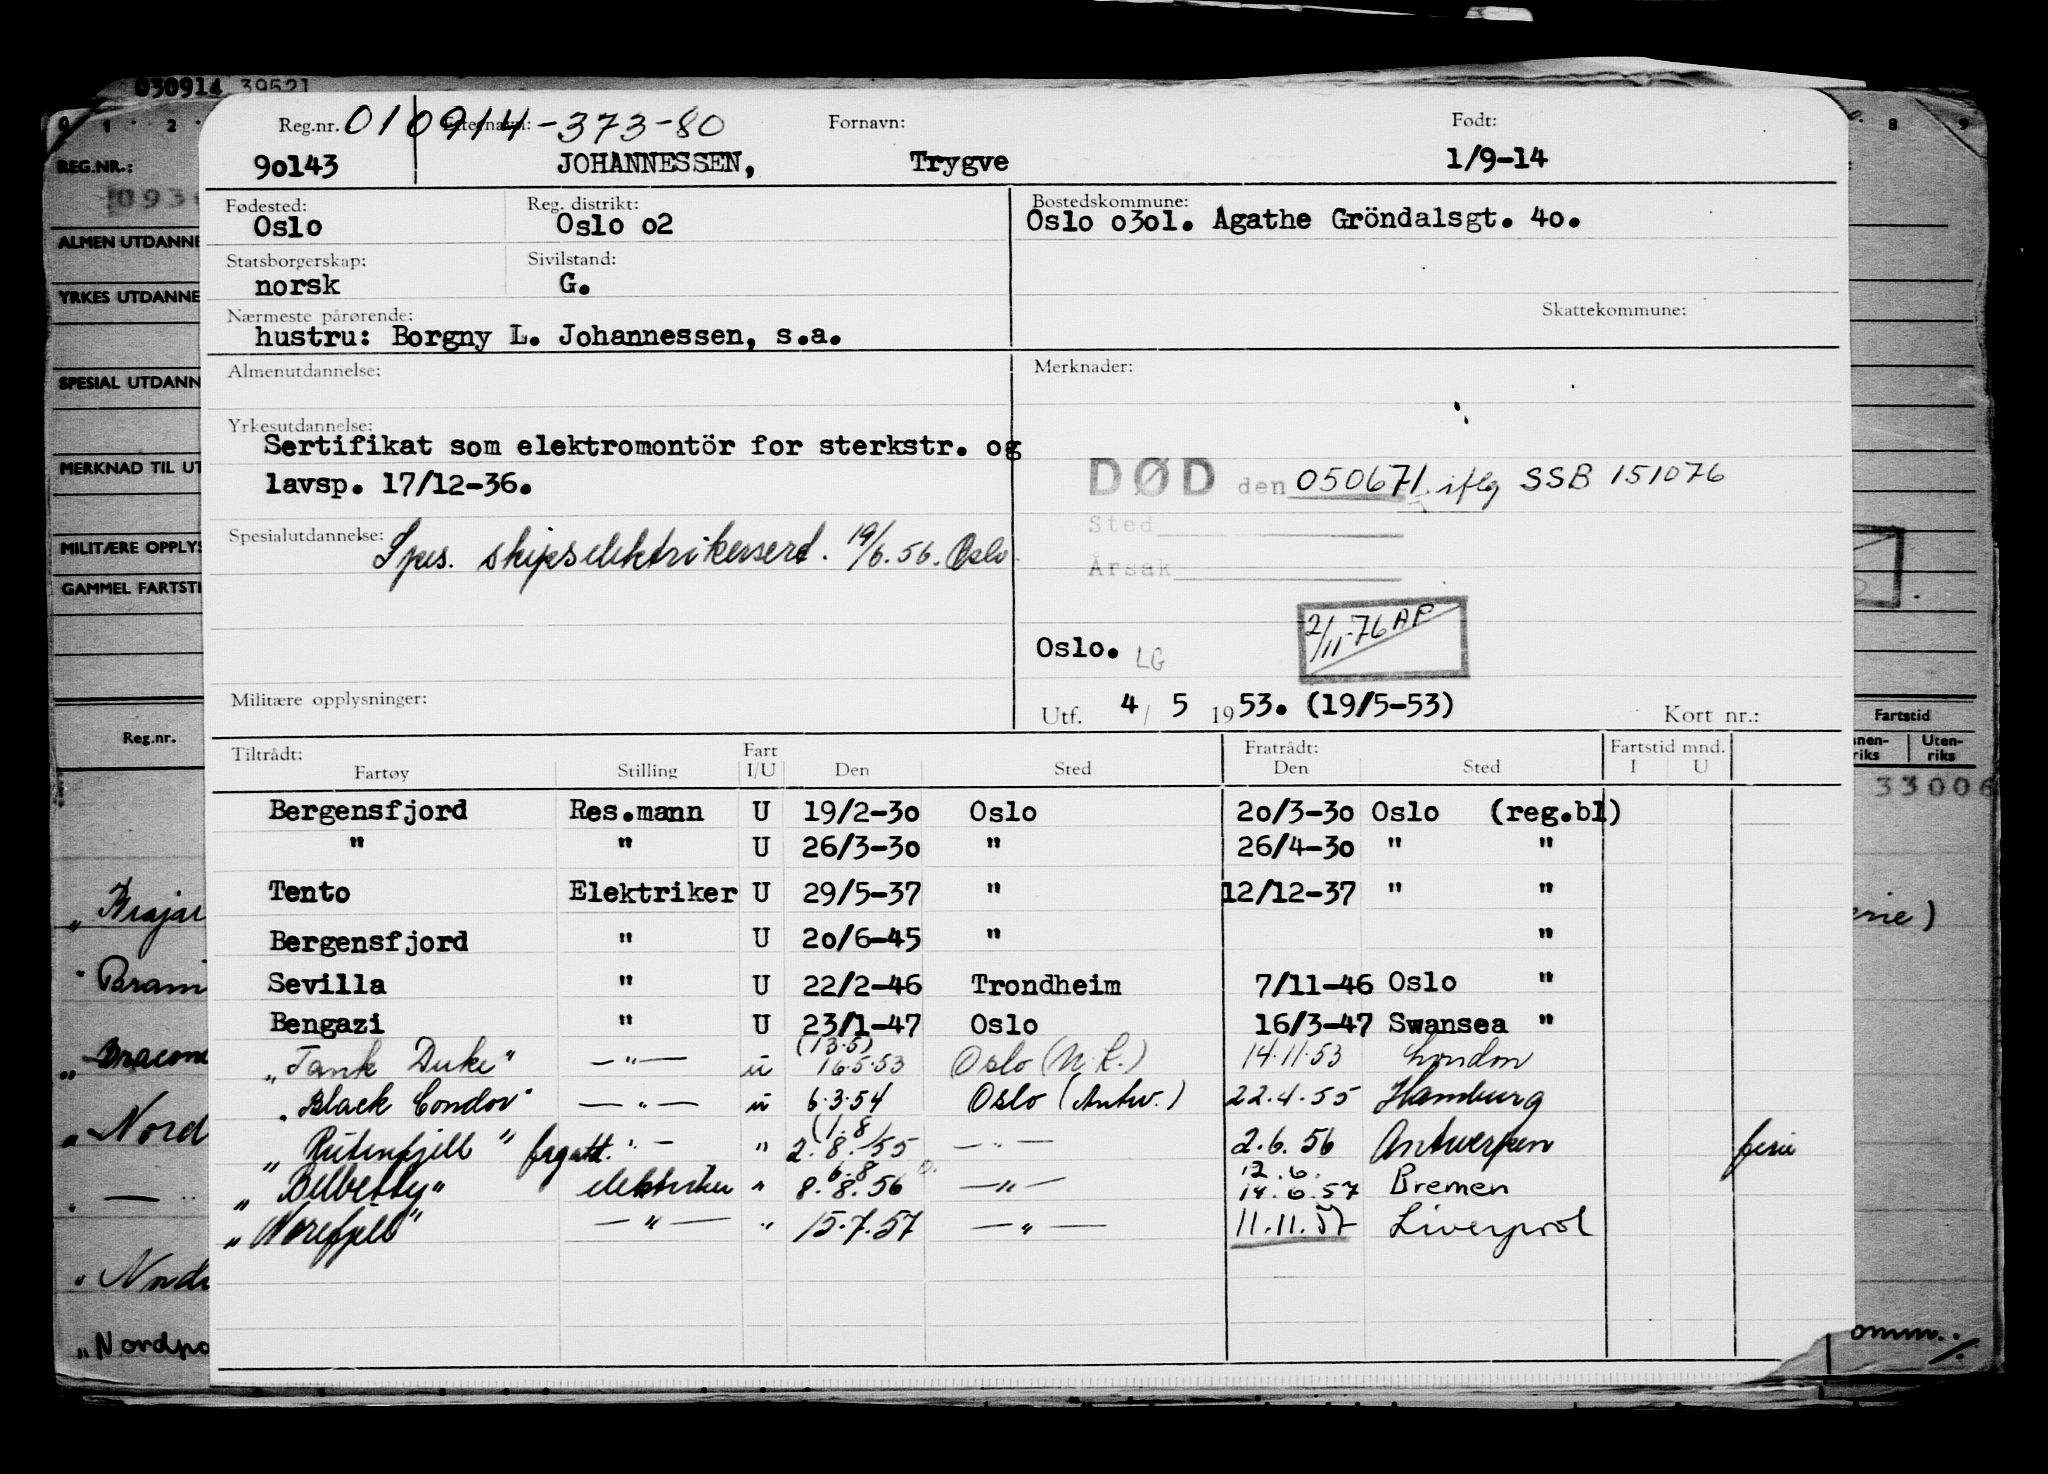 030914 39521
Reg.nr. 010914-373-80 Etternavn: Fornavn: Født:
90143 JOHANNESSEN, Trygve 1/9-14
Fødested: Reg. distrikt: Bostedskommune:
Oslo Oslo o2 Oslo o3o1. Agathe Gröndalsgt. 4o.
Statsborgerskap: Sivilstand:
norsk G.
Nærmeste pårørende: Skattekommune:
hustru: Borgny L. Johannessen, s.a.
Almenutdannelse: Merknader:
Yrkesutdannelse:
Sertifikat som elektromontör for sterkstr. og
lavsp. 17/12-36.
DØD den 050671 iflg SSB 151076
Sted
Årsak
Spesialutdannelse:
Spes. skipselektrikersert. 19/6.56. Oslo
2/11-76 AP
Oslo. LG
Militære opplysninger:
Utf. 4/ 5 1953. (19/5-53) Kort nr.:
Tiltrådt: Fart Fratrådt: Fartstid mnd.
Fartøy Stilling I/U Den Sted Den Sted I U
Bergensfjord Res.mann U 19/2-3o Oslo 2o/3-3o Oslo (reg.bl)
" " U 26/3-3o " 26/4-3o " "
Tento Elektriker U 29/5-37 " 12/12-37 " "
Bergensfjord " U 2o/6-45 " "
Sevilla " U 22/2-46 Trondheim 7/11-46 Oslo "
Bengazi " U 23/1-47 Oslo 16/3-47 Swansea "
(13.5)
"Tank Duke" —"— u 16.5.53 Oslo (N.L.) 14.11.53 London
"Black Condor" —"— u 6.3.54 Oslo (Antw.) 22.4.55 Hamburg
(1.8)
"Rutenfjell" fagatt. "— " 2.8.55 —"— 2.6.56 Antwerpen ferie
6.8 12.6.
"Belbetty" elektriker " 8.8.56 —"— 14.6.57 Bremen
"Norefjell" —"— " 15.7.57 —"— 11.11.57 Liverpool
REG.NR.:
ALMEN UTDANNE
YRKES UTDANNE
SPESIAL UTDANN
MERKNAD TIL UT
MILITÆRE OPPLYS
GAMMEL FARTSTI
Reg.nr.
"Brajar
"Bram
"Dracom
"Nord
"—"
"Nord
"Nordpo
8 9
Fartstid
nnen-riks Uten-riks
33006
erie)
omm. ./.